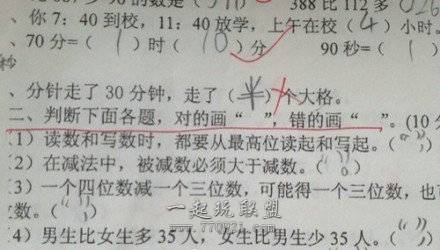 388 比 112 多
、你 7：40 到校，11：40 放学，上午在校（4）小时。
、70 分=（1）时（10）分 90 秒=（
秒
、分针走了 30 分钟，走了（半）个大格。
二、判断下面各题，对的画“ ”，错的画“ ”。(10 分
（1）读数和写数时，都要从最高位读起和写起。（“ ”）
（2）在减法中，被减数必须大于减数。（“ ”）
（3）一个四位数减一个三位数，可能得一个三位数，也
数。（“ ”）
（4）男生比女生多 35 人，女生比男生少 35 人。（
一起玩联盟